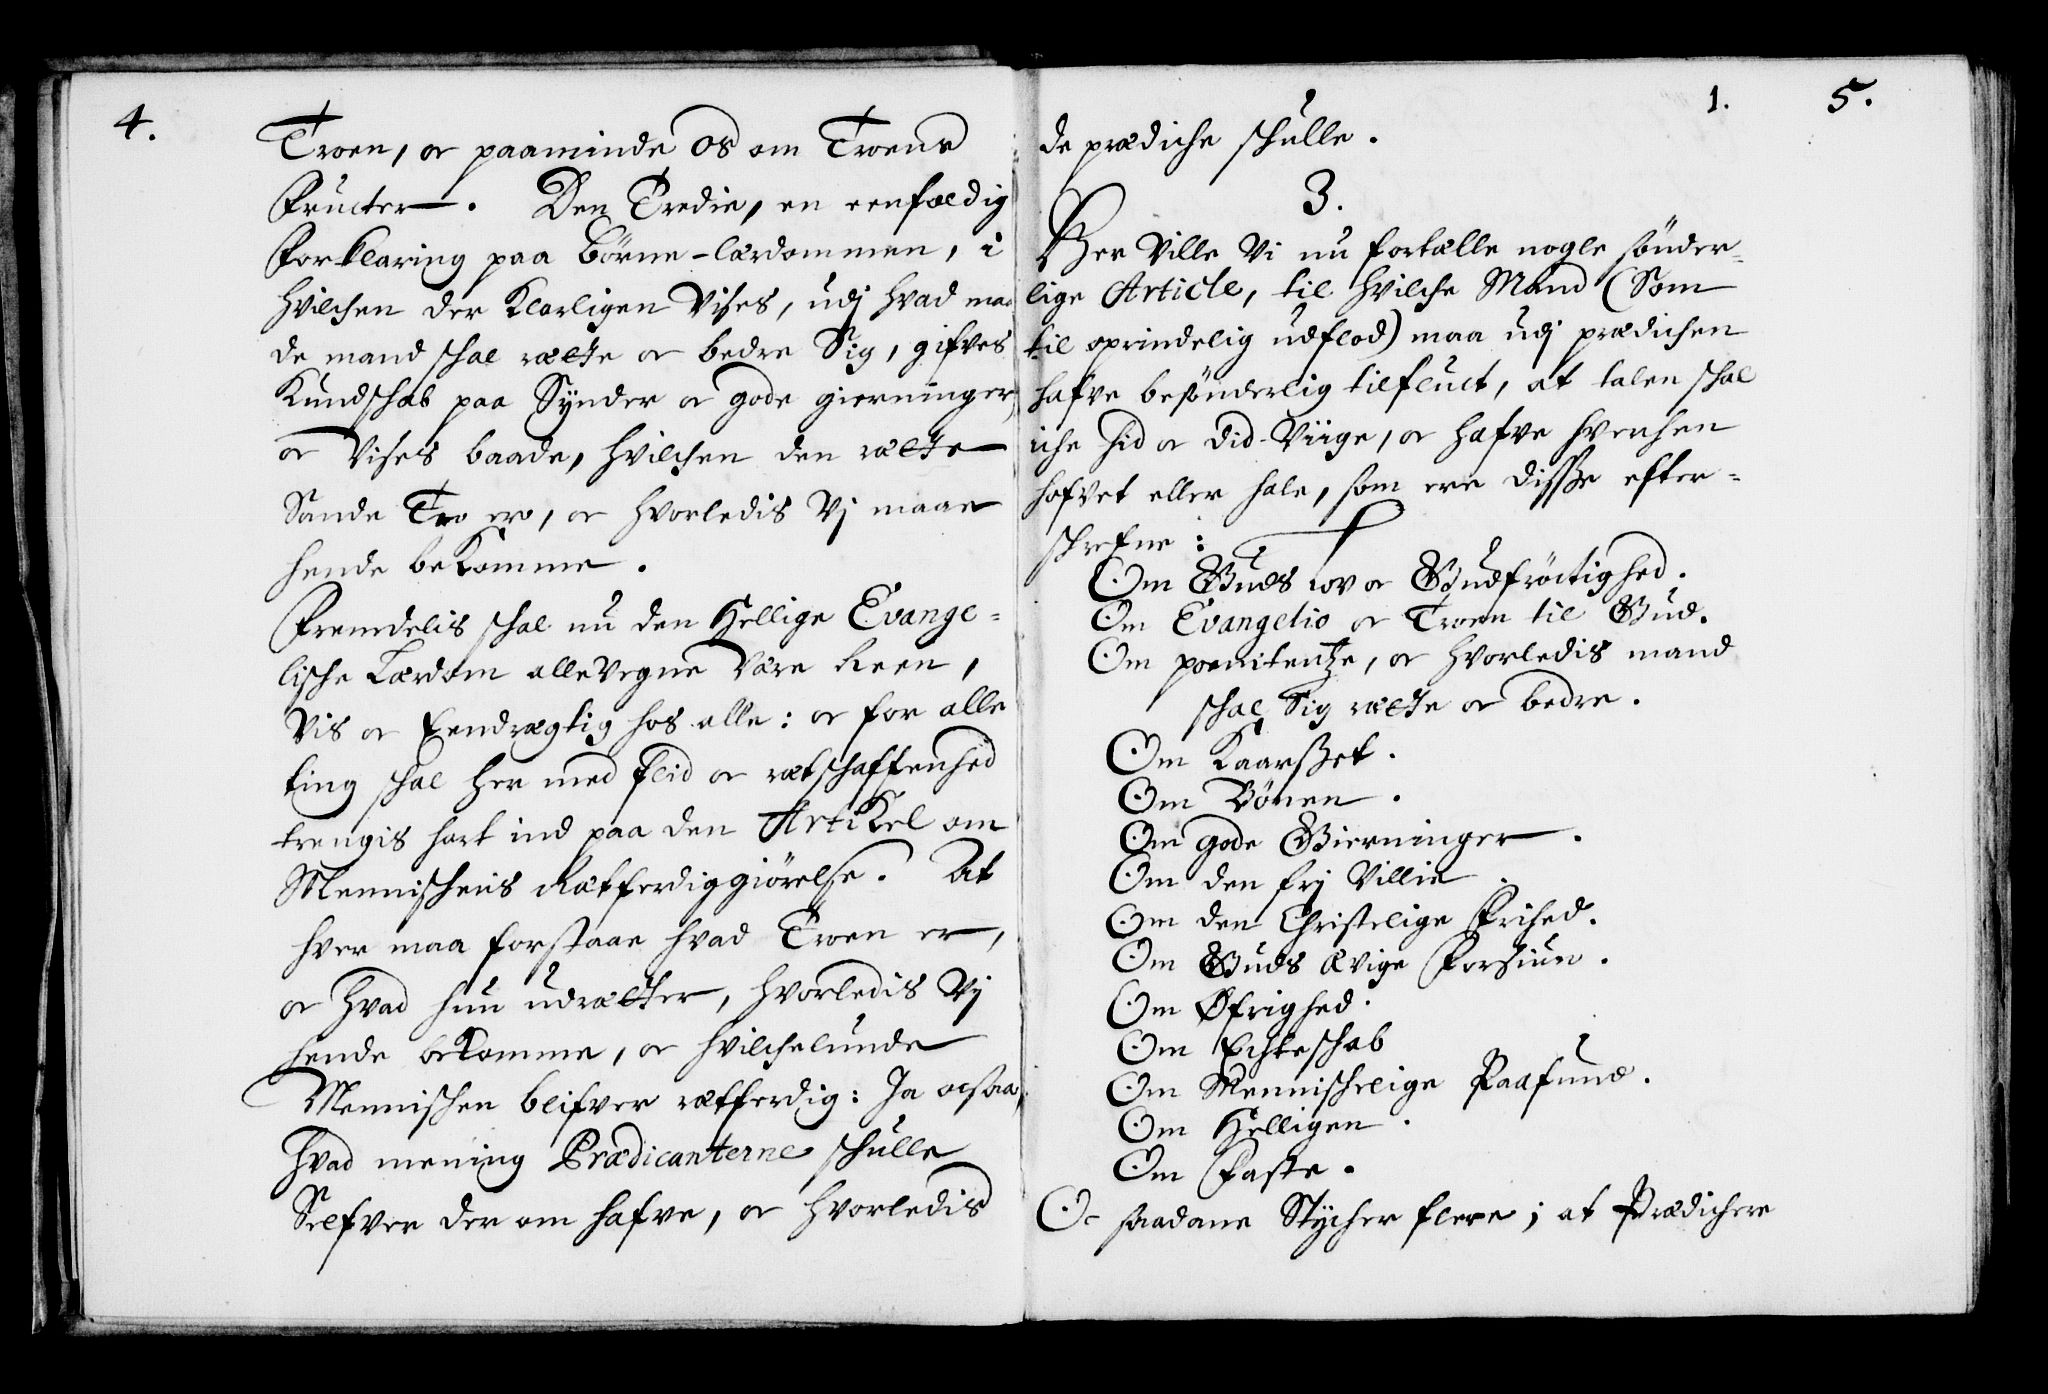 4.
Troen, oc paaminde os om Troens
Fructer. Den Tredie, en eenfoldig
Forklaring paa Börne-lærdommen, i
hvilchen der Klarligen Vises, udj hvad maa
de mand schal rætte oc bedre Sig, gifves
Kundschab paa Synder oc gode gierninger,
oc Vises baade, hvilchen den rætte
Sande Tro ero, oc hvorledis Vj maae
hende beKomme.
Fremdelis schal nu den Hellige Evange=
lische Lærdom alleVegne Være Reen,
Vis oc Eendrægtig hos alle: oc for alle
ting schal her med flid oc rætschaffenhed
trengis hart ind paa den ArtiKel om
Mennischens Rætferdiggiörelse. At
hver maa forstaae hvad Troen er,
oc hvad hun udrætter, hvorledis Vj
hende beKomme, oc hvilchelunde
Mennischen blifver rætferdig: Ja ocsaa,
hvad mening Prædicanterne schulle
Selfver der om hafve, oc hvorledis
1. 5.
de prædiche schulle.
3.
Her Ville Vi nu fortælle nogle sönder=
lige Article, til hvilche Mand (Som
til oprindelig udflod) maa udj prædichen
hafve besönderlig tilfluct, at talen schal
iche hid oc did Viige, oc hafve hverchen
hofvet eller hale, som ere disse efter=
schrefne:
Om Guds lov oc Gudfröctighed.
Om Evangelio oc Troen til Gud.
Om poenitentze, oc hvorledis mand
schal Sig rætte oc bedre.
Om Kaarsset.
Om Bönen.
Om gode Gierninger.
Om den frj Villie.
Om den Christelige Frihed.
Om Guds Ævige Forsiun.
Om Øfrighed.
Om Echteschab
Om Mennischelige Paafund.
Om Helligen.
Om Faste.
Oc saadane Stycher flere; at Prædichere